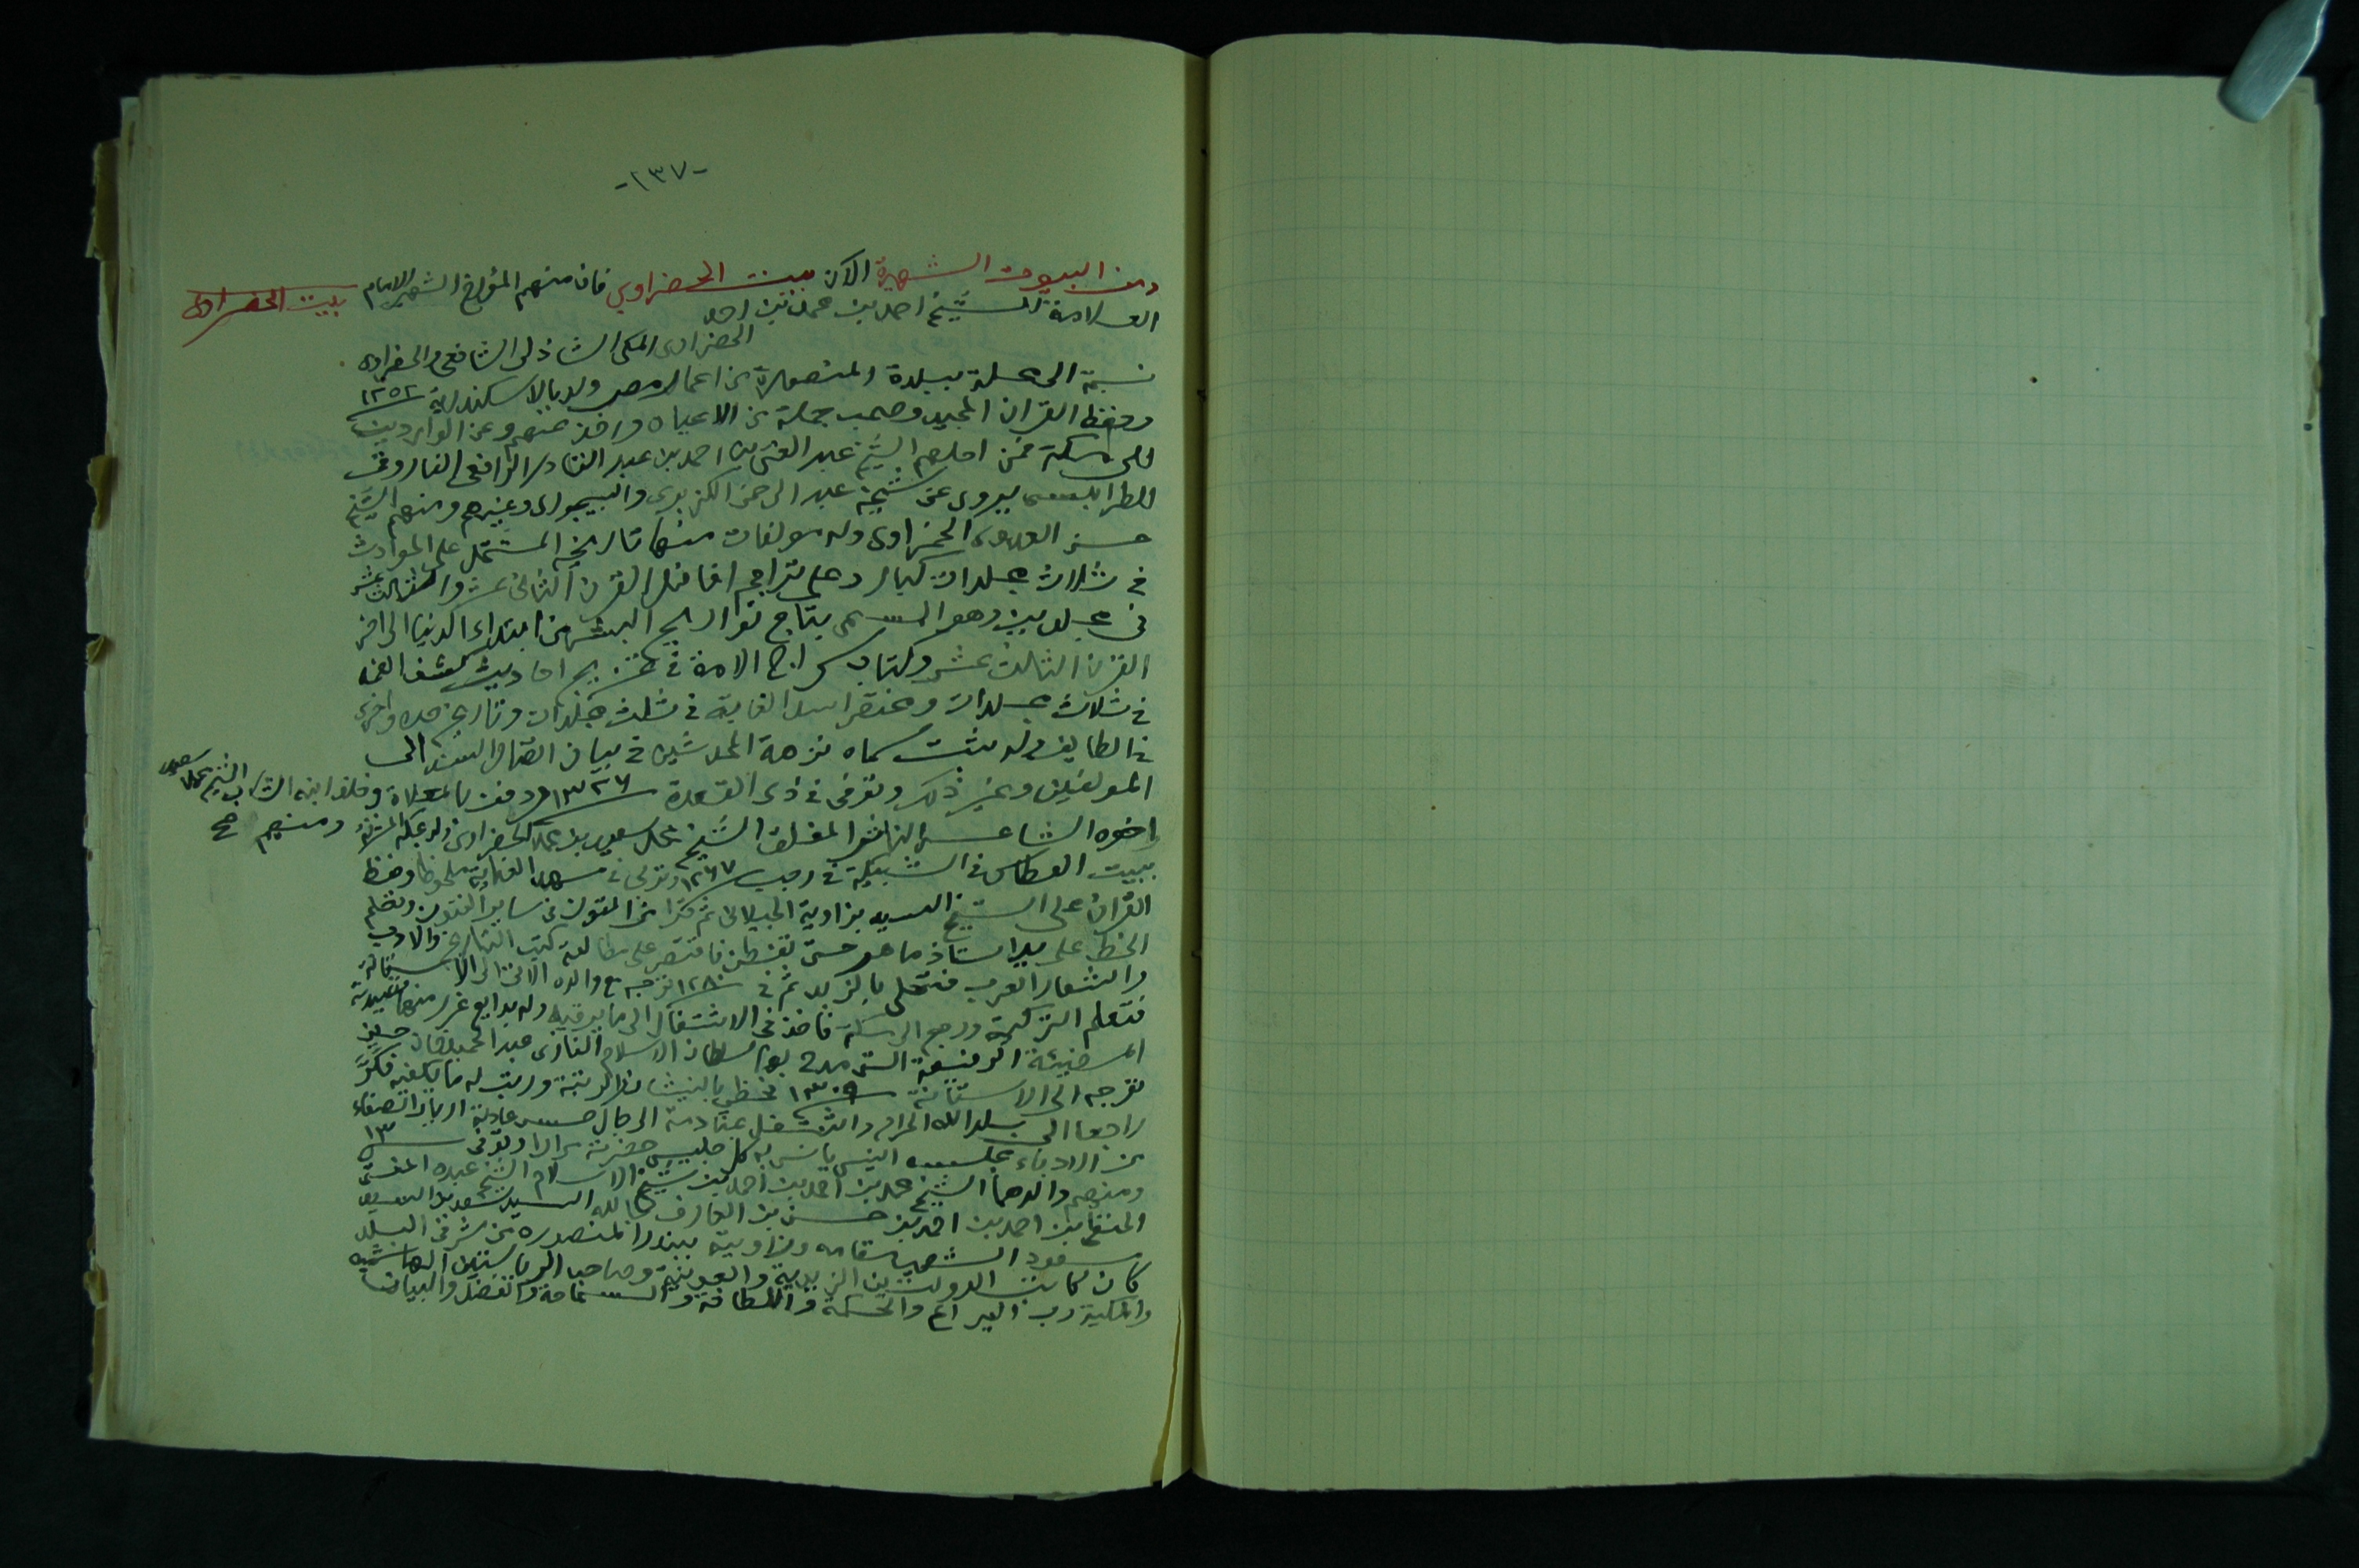 -١٣٧-
ومن البيوت الشهيرة الآن بيت الحضراوي فان منهم المؤرخ الشهير الامام
بيت الحضراوى
العلامة الشيخ احمد بن محمد بن احمد
الحضراوى المكى الشاذلى الشافعى والحضراوى
نسبة الى محلة ببلدة المنصورة من اعمال مصر ولد بالاسكندرية ١٢٥٢
وحفظ القران المجيد وصحب جملة من الاعيان واخذ عنهم وعن الواردين
الى مكة فمن اجلهم الشيخ عبد الغنى بن احمد بن عبد القادر الرافعى الفاروقى
الطرابلسى يروى عن شيخه عبد الرحمن الكزبرى والبيجورى وغيرهم ومنهم الشيخ
حسن العدوى الحمزاوى وله مولفات منها تاريخه المشتمل على الحوادث
فى ثلاث مجلدات كبار وعلى تراجم افاضل القرن الثانى عشر والثالث عشر
فى مجلدين وهو المسمى بتاج تواريخ البشر من ابتداء الدنيا الى اخر
القرن الثالث عشر وكتاب سراج الامة فى تخريج احاديث كشف الغمه
فى ثلاث مجلدات ومختصر اسد الغابة فى ثلث مجلدات وتاريخ جده واخرى
فى الطايف وله ثبت سماه نزهة المحدثين فى بيان اتصال السند الى
المولفين وغير ذلك وتوفى فى ذى القعدة ١٣٢٦ ودفن بالمعلاة وخلف ابنه الشاب الشيخ محمد سعيد
ومنهم صح
اخوه الشاعر الناثر المفلق الشيخ محمد سعيد بن محمد الحضراوى ولد بمكة المشرفة
ببيت العطاس فى الشبيكة فى رجب ١٢٦٧ وتربى فى مهد العناية ملحوظا وحفظ
القران على الشيخ السيد بزاوية الجيلانى ثم قرا من المتون فى ساير الفنون وتعلم
الخط على يد استاذ ماهر حتى تفطن فاقتصر على مطالعة كتب التاريخ والادب
واشعار العرب فتحلى بالزبد ثم فى ١٢٨٠ توجه مع والده الاتى الى الاستانة
فتعلم التركية ورجع الى مكة فاخذ فى الاشتغال الى ما يرقيه وله بدايع غرر منها قصيدته
توجه الى الاستانة ١٣٠٩ فحظى بالنيشان والرتبة ورتب له ما يكفيه فكر
راجعا الى بلد الله الحرام
من الادباء
ومنهم والدهما الشيخ محمد بن احمد بن احمد بن شيخ الاسلام الشيخ عبده المفتى
الحنفى بن احمد بن احمد بن حسن بن العارف بالله السيد
مقامه وزاويته ببندر المنصورة من شرقى البلد
كان كاتب الدولتين الزيدية والعونية وصاحب الرياستين الهاشمية
والمكية رب اليراع والحكمة واللطافة والسماحة والفضل والبيان